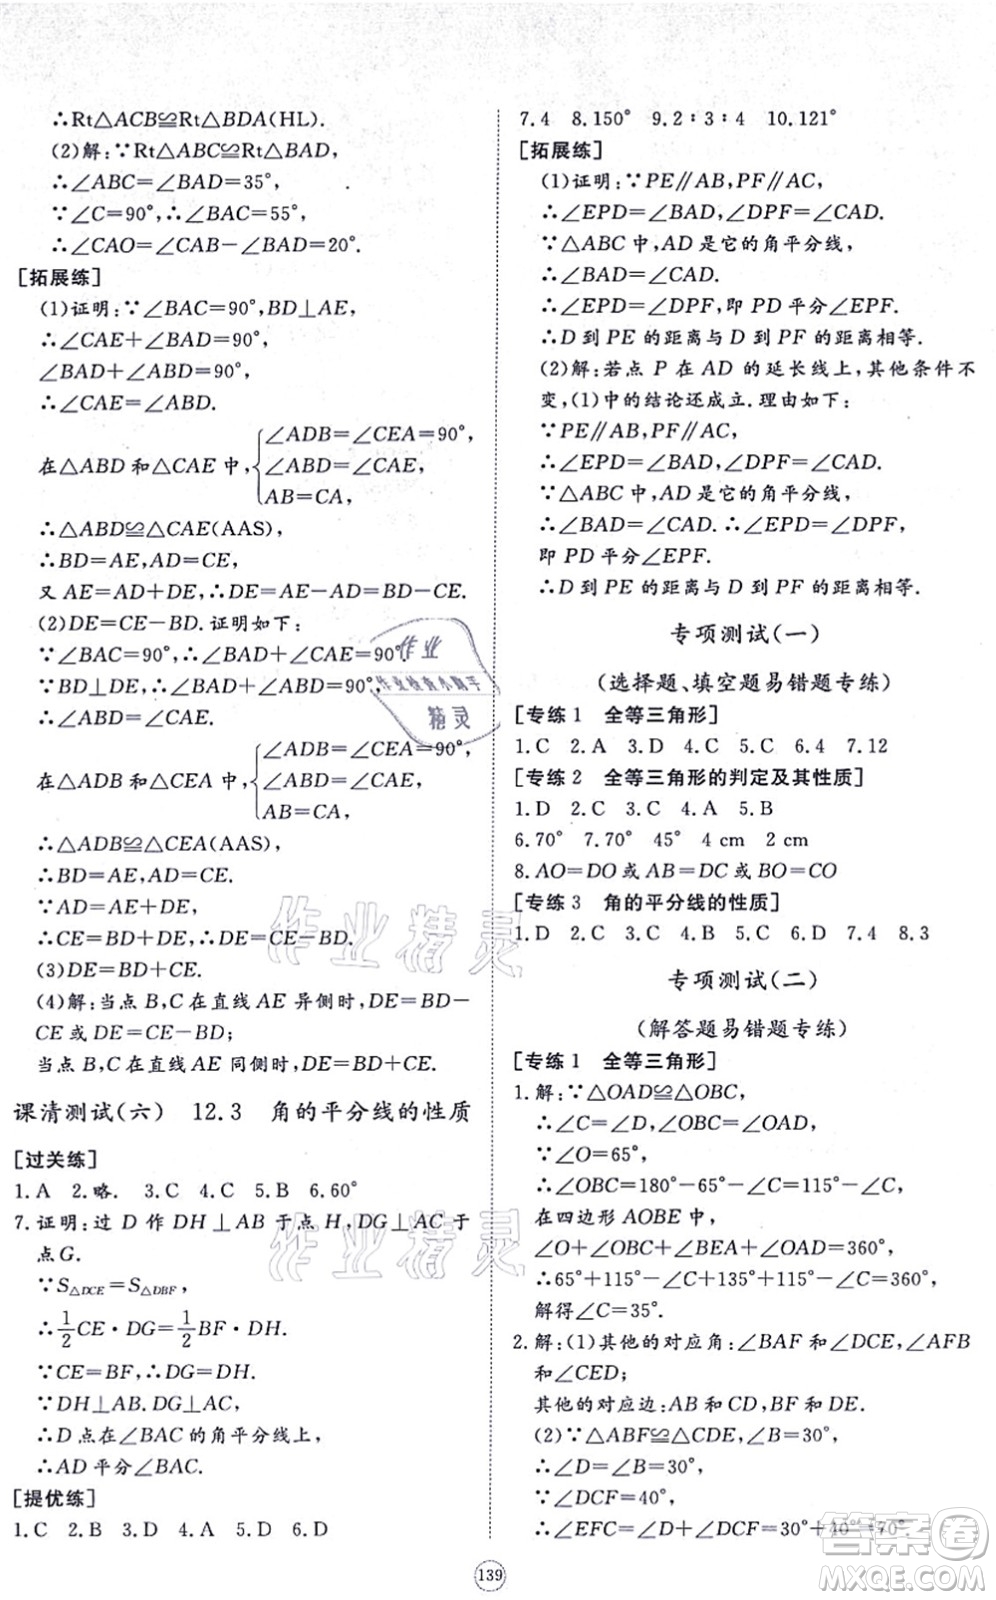 ∴Rt△ACB≌Rt△BDA(HL).
(2)解:∵Rt△ABC≌Rt△BAD,
∴∠ABC=∠BAD=35°,
∵∠C=90°,∴∠BAC=55°,
∴∠CAO=∠CAB-∠BAD=20°.
[拓展练]
(1)证明:∵∠BAC=90°,BD⊥AE,
∴∠CAE+∠BAD=90°,
∠BAD+∠ABD=90°,
∴∠CAE=∠ABD.
在△ABD和△CAE中,{∠ADB=∠CEA=90°,
∠ABD=∠CAE,
AB=CA,
∴△ABD≌△CAE(AAS),
∴BD=AE,AD=CE,
又AE=AD+DE,∴DE=AE-AD=BD-CE.
(2)DE=CE-BD.证明如下:
∵∠BAC=90°,∴∠BAD+∠CAE=90°.
∵BD⊥DE,∴∠BAD+∠ABD=90°,
∴∠ABD=∠CAE.
在△ADB和△CEA中,{∠ADB=∠CEA=90°,
∠ABD=∠CAE,
AB=CA,
∴△ADB≌△CEA(AAS),
∴BD=AE,AD=CE.
∵AD=AE+DE,
∴CE=BD+DE,∴DE=CE-BD.
(3)DE=BD+CE.
(4)解:当点B,C在直线AE异侧时,DE=BD-
CE或DE=CE-BD;
当点B,C在直线AE同侧时,DE=BD+CE.
课清测试(六) 12.3 角的平分线的性质
[过关练]
1.A 2.略. 3.C 4.C 5.B 6.60°
7.证明:过D作DH⊥AB于点H,DG⊥AC于
点G.
∵S△DCE=S△DBF,
∴1/2CE·DG=1/2BF·DH.
∵CE=BF,∴DG=DH.
∵DH⊥AB.DG⊥AC,
∴D点在∠BAC的角平分线上,
∴AD平分∠BAC.
[提优练]
1.C 2.B 3.D 4.A 5.D 6.D
7.4 8.150° 9.2∶3∶4 10.121°
[拓展练]
(1)证明:∵PE∥AB,PF∥AC,
∴∠EPD=∠BAD,∠DPF=∠CAD.
∵△ABC中,AD是它的角平分线,
∴∠BAD=∠CAD.
∴∠EPD=∠DPF,即PD平分∠EPF.
∴D到PE的距离与D到PF的距离相等.
(2)解:若点P在AD的延长线上,其他条件不
变,(1)中的结论还成立.理由如下:
∵PE∥AB,PF∥AC,
∴∠EPD=∠BAD,∠DPF=∠CAD.
∵△ABC中,AD是它的角平分线,
∴∠BAD=∠CAD.∴∠EPD=∠DPF,
即PD平分∠EPF.
∴D到PE的距离与D到PF的距离相等.
专项测试(一)
(选择题、填空题易错题专练)
[专练1 全等三角形]
1.C 2.A 3.D 4.C 5.C 6.4 7.12
[专练2 全等三角形的判定及其性质]
1.D 2.C 3.C 4.A 5.B
6.70° 7.70° 45° 4 cm 2 cm
8.AO=DO或AB=DC或BO=CO
[专练3 角的平分线的性质]
1.D 2.C 3.C 4.C 5.B 6.D 7.4 8.3
专项测试(二)
(解答题易错题专练)
[专练1 全等三角形]
1.解:∵△OAD≌△OBC,
∴∠C=∠D,∠OBC=∠OAD,
∵∠O=65°,
∴∠OBC=180°-65°-∠C=115°-∠C,
在四边形AOBE中,
∠O+∠OBC+∠BEA+∠OAD=360°,
∴65°+115°-∠C+135°+115°-∠C=360°,
解得∠C=35°.
2.解:(1)其他的对应角:∠BAF和∠DCE,∠AFB
和∠CED;
其他的对应边:AB和CD,BF和DE.
(2)∵△ABF≌△CDE,∠B=30°,
∴∠D=∠B=30°,
∵∠DCF=40°,
∴∠EFC=∠D+∠DCF=30°+40°=70°.
139
作业
作业检查小助手
精灵
作业精灵
作业精灵
答案卷
MXQE.COM